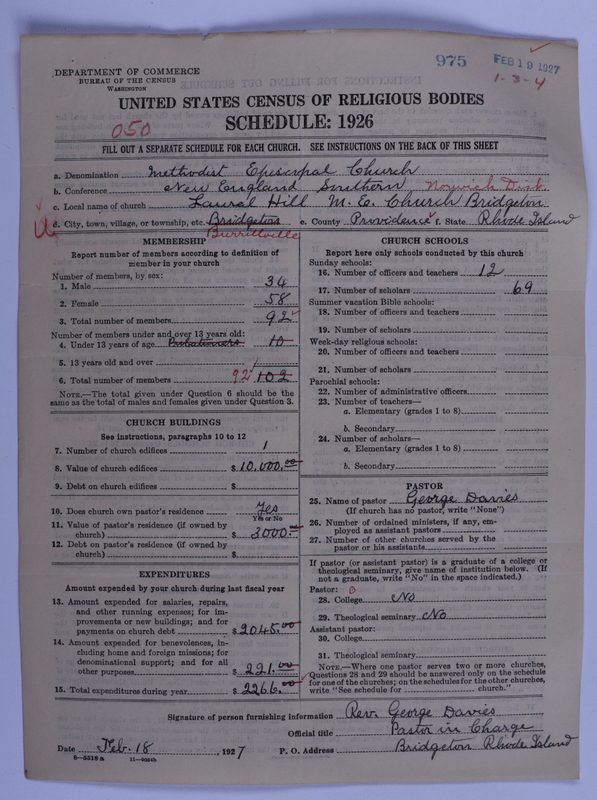 975 FEB 19 1927
1-3-4
DEPARTMENT OF COMMERCE
BUREAU OF THE CENSUS
WASHINGTON
UNITED STATES CENSUS OF RELIGIOUS BODIES
SCHEDULE: 1926
050
FILL OUT A SEPARATE SCHEDULE FOR EACH CHURCH. SEE INSTRUCTIONS ON THE BACK OF THIS SHEET
a. Denomination Methodist Episcopal Church
b. Conference New England Southern Norwich Dist.
c. Local name of church Laural Hill M.E. Church Bridgeton
d. City, town, village, or township, etc. Bridgeton e. County Providence f. State Rhode Island
Burrillville
MEMBERSHIP
Report number of members according to definition of
member in your church
Number of members, by sex:
1. Male 34
2. Female 58
3. Total number of members 92
Number of members under and over 13 years old:
4. Under 13 years of age Probationers 10
5. 13 years old and over
6. Total number of members 92 102
NOTE.—The total given under Question 6 should be the
same as the total of males and females given under Question 3.
CHURCH BUILDINGS
See instructions, paragraphs 10 to 12
7. Number of church edifices 1
8. Value of church edifices $ 10,000.00
9. Debt on church edifices $
10. Does church own pastor's residence Yes
Yes or No
11. Value of pastor's residence (if owned by
church) $ 3000.00
12. Debt on pastor's residence (if owned by
church) $
EXPENDITURES
Amount expended by your church during last fiscal year
13. Amount expended for salaries, repairs,
and other running expenses; for im-
provements or new buildings; and for
payments on church debt $ 2045.00
14. Amount expended for benevolences, in-
cluding home and foreign missions; for
denominational support; and for all
other purposes $ 221.00
15. Total expenditures during year $ 2266.00
CHURCH SCHOOLS
Report here only schools conducted by this church
Sunday schools:
16. Number of officers and teachers 12
17. Number of scholars 69
Summer vacation Bible schools:
18. Number of officers and teachers
19. Number of scholars
Week-day religious schools:
20. Number of officers and teachers
21. Number of scholars
Parochial schools:
22. Number of administrative officers
23. Number of teachers—
a. Elementary (grades 1 to 8)
b. Secondary
24. Number of scholars—
a. Elementary (grades 1 to 8)
b. Secondary
PASTOR
25. Name of pastor George Davies
(If church has no pastor, write "None")
26. Number of ordained ministers, if any, em-
ployed as assistant pastors
27. Number of other churches served by the
pastor or his assistants
If pastor (or assistant pastor) is a graduate of a college or
theological seminary, give name of institution below. (If
not a graduate, write "No" in the space indicated.)
Pastor: 0
28. College No
29. Theological seminary No
Assistant pastor:
30. College
31. Theological seminary
NOTE.—Where one pastor serves two or more churches,
Questions 28 and 29 should be answered only on the schedule
for one of the churches; on the schedules for the other churches,
write "See schedule for church."
Signature of person furnishing information Rev. George Davies
Official title Pastor in Charge
Date Feb. 18, 1927 P. O. Address Bridgeton Rhode Island